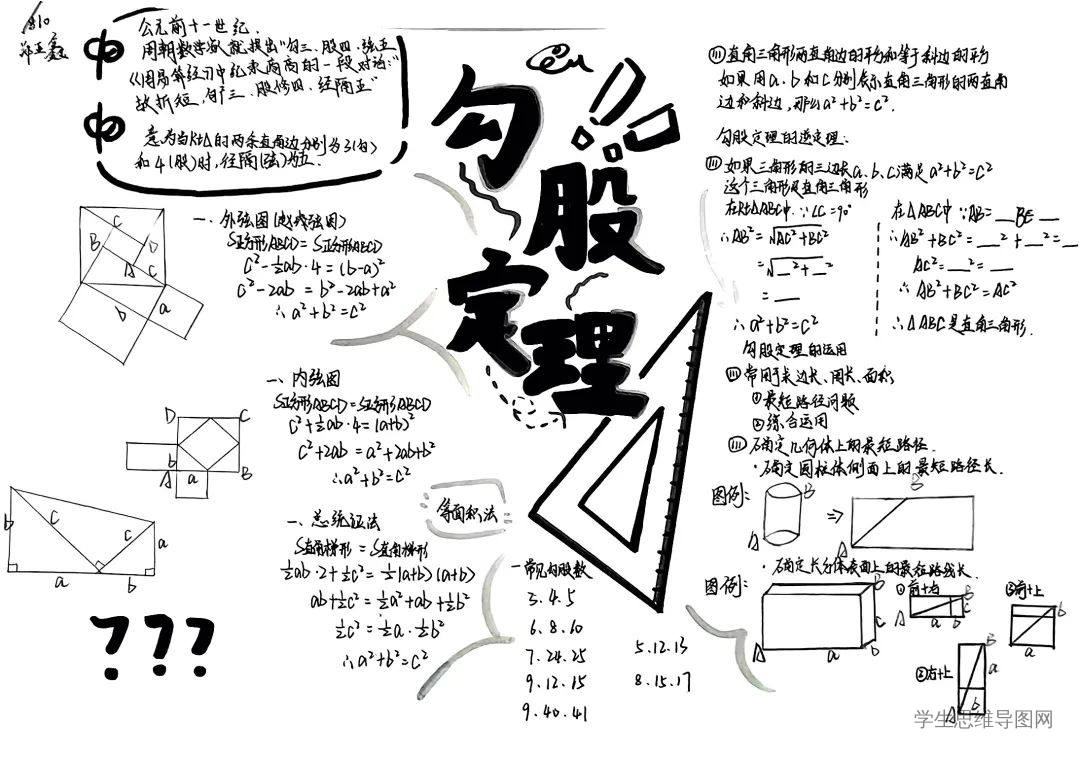 810
公元前十一世纪.
周朝数学家就提出"勾三、股四、弦五
《周髀算经》中纪录商高的一段对话:"
故折矩,勾广三、股修四、经隅五"
意为当Rt△的两条直角边分别为3(勾)
和4(股)时,径隅(弦)为五.
勾股定理
一、外弦图(赵爽弦图)
S正方形ABCD=S正方形ABCD
c²-½ab·4=(b-a)²
c²-2ab=b²-2ab+a²
∴a²+b²=c²
C
B
D
A
C
b
a
一、内弦图
S正方形ABCD=S正方形ABCD
c²+½ab·4=(a+b)²
c²+2ab=a²+2ab+b²
∴a²+b²=c²
D
C
b
A
a
B
一、总统证法
S直角梯形=S直角梯形
½ab·2+½c²=½(a+b)(a+b)
ab+½c²=½a²+ab+½b²
½c²=½a·½b²
∴a²+b²=c²
b
c
c
a
a
b
???
等面积法
一常见勾股数
3.4.5
6.8.10
7.24.25
9.12.15
9.40.41
5.12.13
8.15.17
直角三角形两直角边的平方和等于斜边的平方
如果用a、b和c分别表示直角三角形的两直角
边和斜边,那么a²+b²=c².
勾股定理的逆定理:
如果三角形的三边长a、b、c满足a²+b²=c²
这个三角形是直角三角形
在Rt△ABC中∵∠C=90°
∴AB²=√AC²+BC²
=√__²+__²
=__
∴a²+b²=c²
在△ABC中∵AB=__BC__
∴AB²+BC²=__²+__²=__
AC²=__²=__
∴AB²+BC²=AC²
∴△ABC是直角三角形.
勾股定理的运用
常用于求边长、周长、面积
①最短路径问题
②综合运用
确定几何体上的最短路径.
·确定圆柱体侧面上的最短路径长.
图例:
B
A
⇒
B
A
·确定长方体表面上的最短路线长.
图例:
B
C
A
a
b
①前+右
B
C
A
a
b
③前+上
b
a
②左+上
B
a
A
b
学生思维导图网